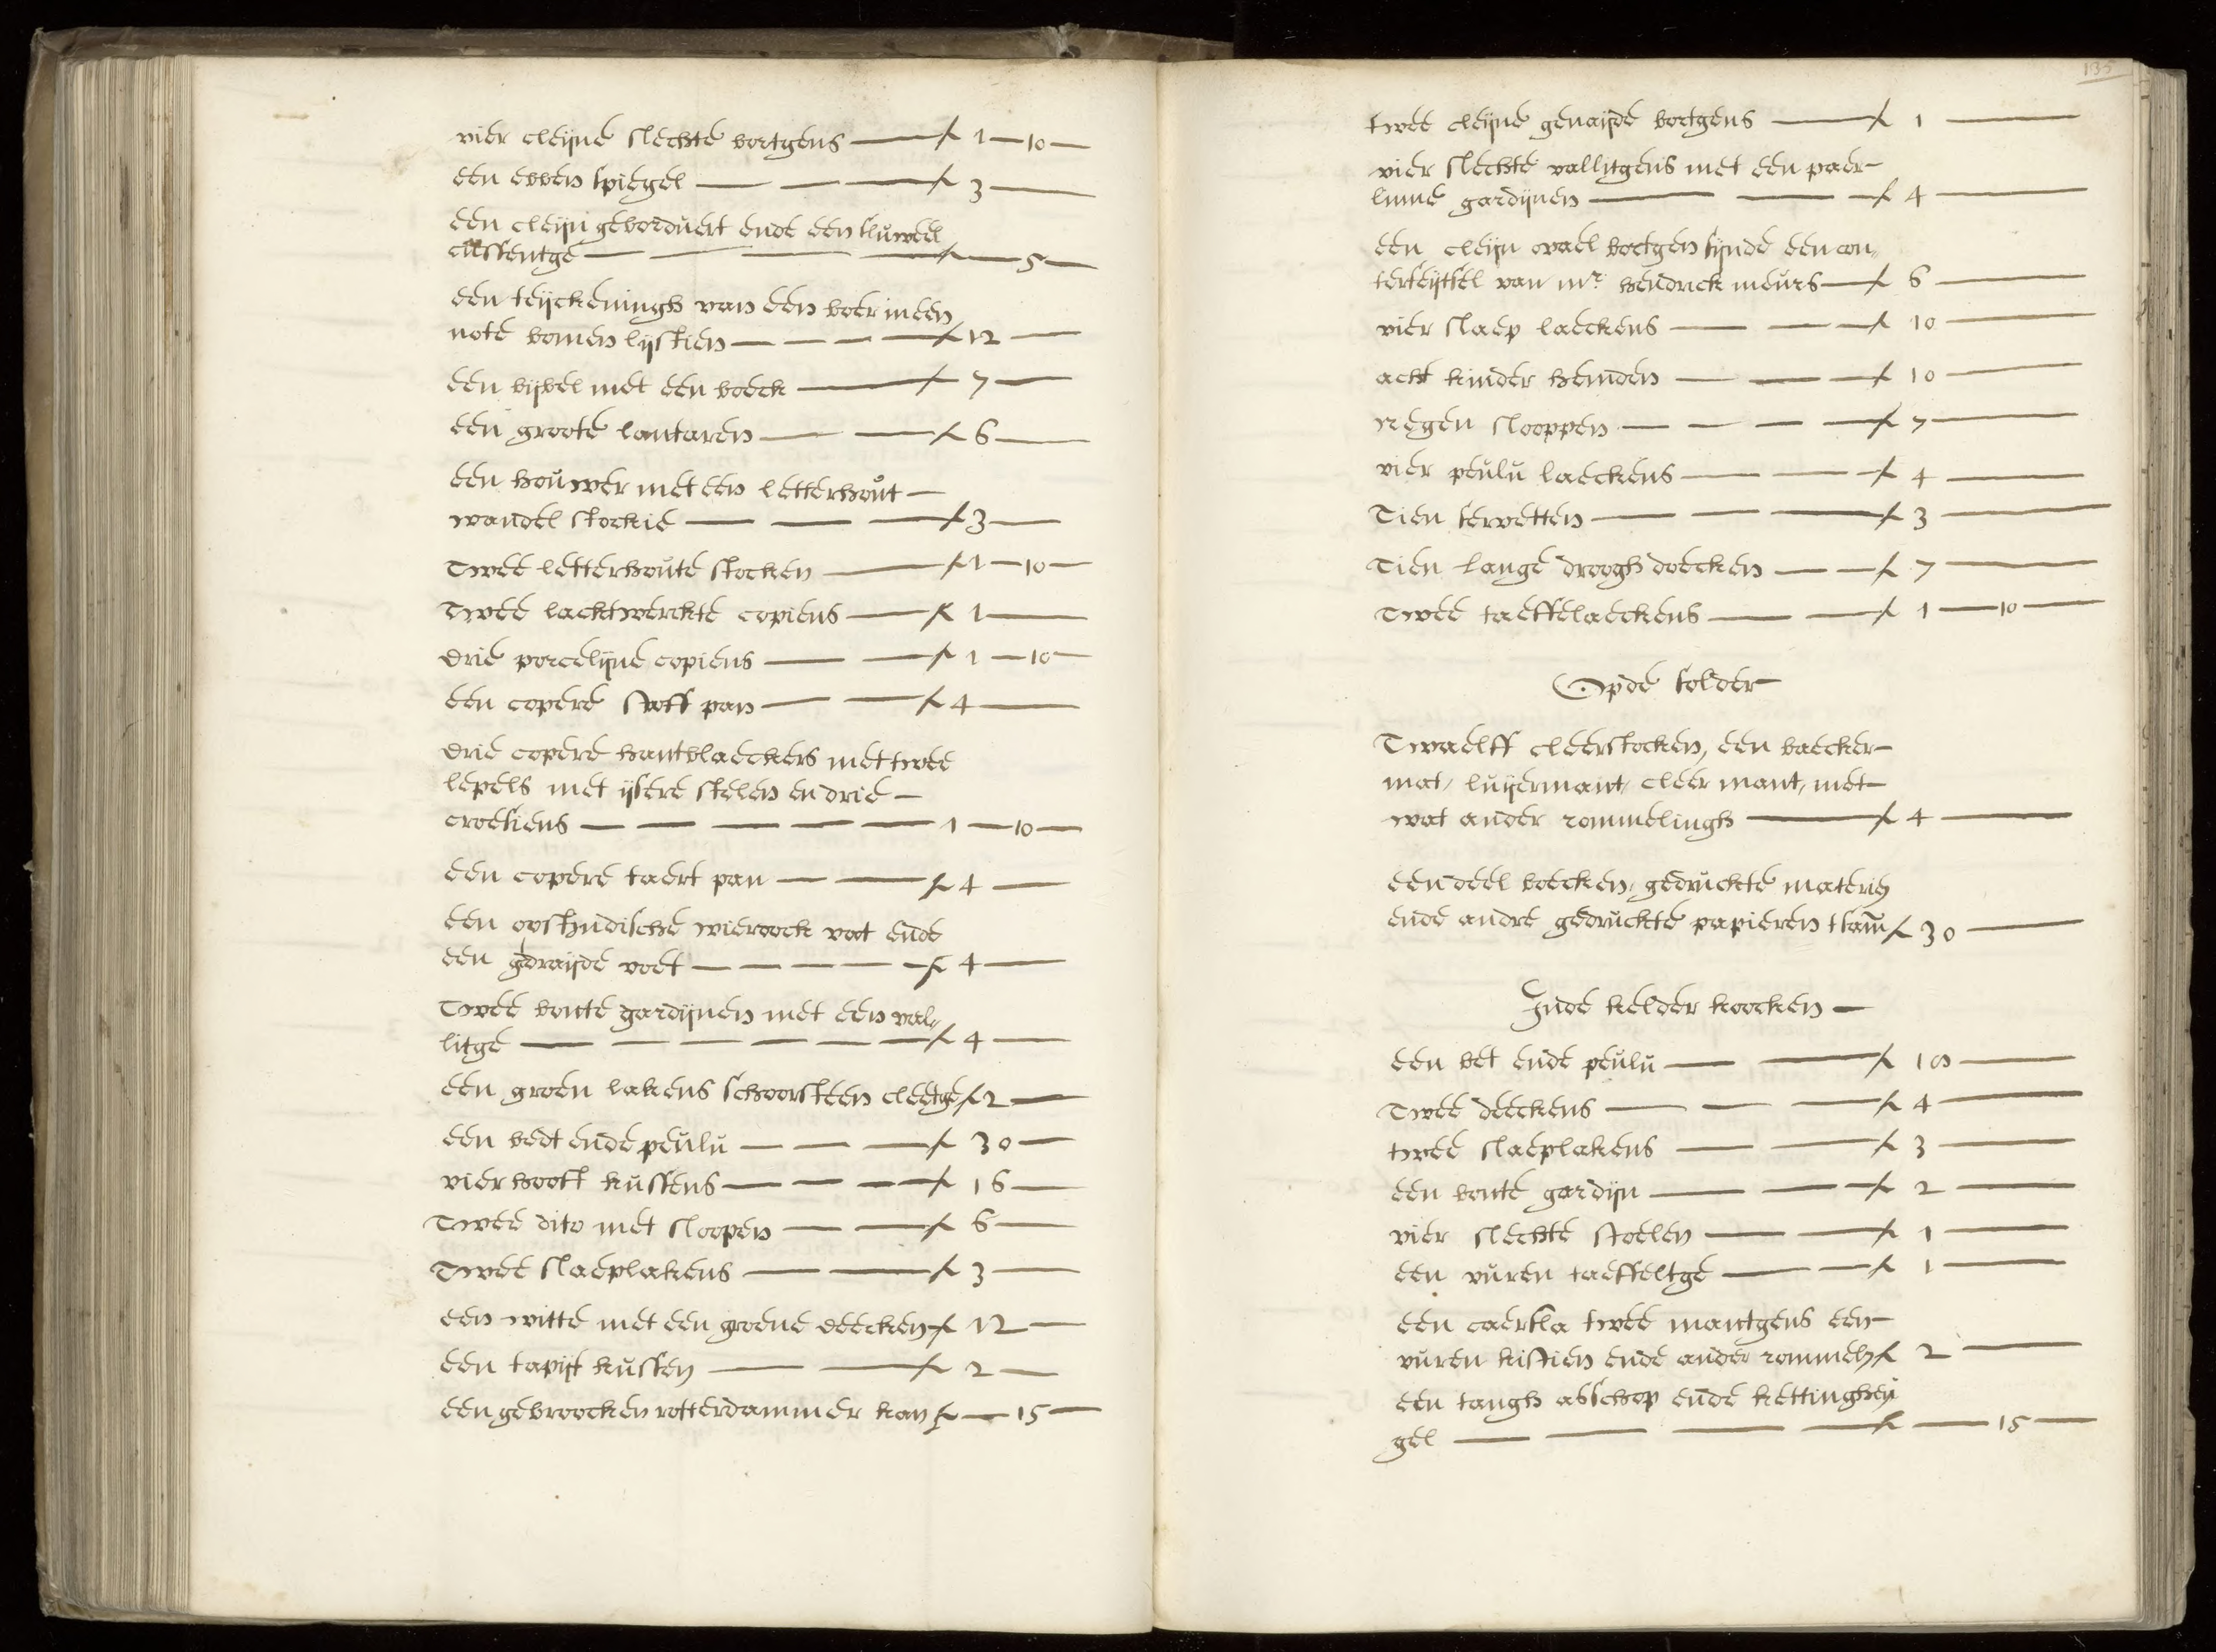 vier cleijne slechte bortgens — ƒ 1 — 10 —
een ebben spiegel — — — ƒ 3 —
een cleijn geborduert ende een fluweel
cussentge — — — ƒ — 5 —
een teijckeningh van een boer in een
note bomen lijstien — — — ƒ 12 —
een bijbel met een boeck — ƒ 7 —
een groote lantaren — — ƒ 6 —
een houwer met een letterhout —
wandel stockie — — — ƒ 3 —
Twee letterhoute stocken — ƒ 1 — 10 —
Twee lacktwerckte copiens — ƒ 1 —
drie porcelijne copiens — — ƒ 1 — 10 —
een copere stoff pan — — ƒ 4 —
drie copere hantblaeckers met twee
lepels met ijsere stelen en drie —
croesiens — — — — — 1 — 10 —
een copere taert pan — — ƒ 4 —
een oostindische wieroock vat ende
een gedraijde voet — — — — ƒ 4 —
Twee bonte gardijnen met een val„
litge — — — — — ƒ 4 —
een groen lakens schoorsteen cleetge ƒ 2 —
een bedt ende peulu — — — ƒ 30 —
vier hooft kussens — — — ƒ 16 —
Twee dito met sloopen — — ƒ 6 —
Twee slaeplakens — — ƒ 3 —
een witte met een groene deecken ƒ 12 —
een tapijt kussen — — ƒ 2 —
een gebroocken rotterdammer kan ƒ — 15 —
135
twee cleijne genaijde bortgens — ƒ 1 —
vier slechte vallitgens met een paer —
linne gardijnen — — ƒ 4 —
een cleijn ovael bortgen sijnde een con„
terfeijtsel van mr. hendrick meurs — ƒ 6 —
vier slaep laeckens — — ƒ 10 —
acht kinder hemden — — ƒ 10 —
negen slooppen — — — ƒ 7 —
vier peulu laeckens — — ƒ 4 —
Tien servetten — — — ƒ 3 —
Tien lange droogh doecken — — ƒ 7 —
Twee taeffelaeckens — — ƒ 1 — 10 —
Opde solder
Twaelff cleerstocken, een baecker —
mat, luijermant, cleer mant, met —
wat ander rommelingh — ƒ 4 —
een deel boecken, gedruckte materie
ende andre gedruckte papieren tsam ƒ 30 —
Inde kelder koocken —
een bet ende peulu — — ƒ 10 —
Twee deeckens — — — ƒ 4 —
twee slaeplakens — — ƒ 3 —
een bonte gardijn — — ƒ 2 —
vier slechte stoelen — — ƒ 1 —
een vuren taeffeltge — — ƒ 1 —
een caersla twee mantgens een —
vuren kistien ende ander rommelı ƒ 2 —
een tangh asschop ende kettinghen
gel — — — ƒ — 15 —